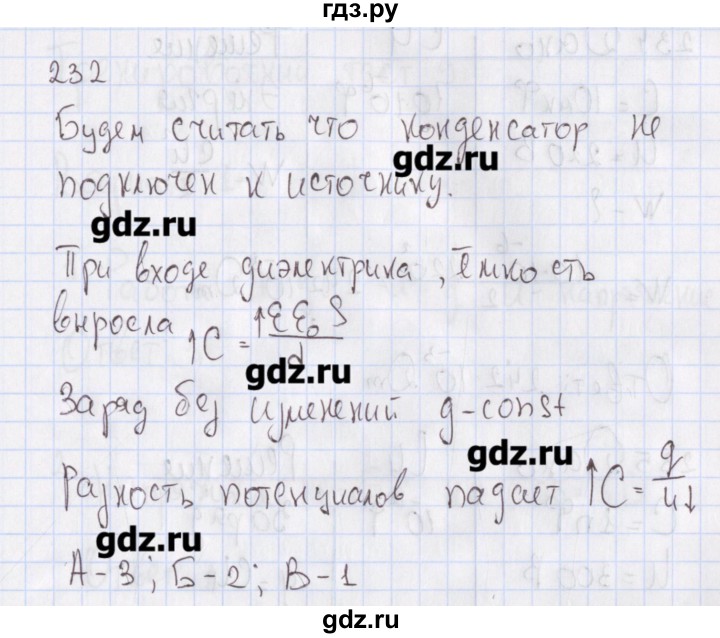 гдз.ру
232
Будем считать что конденсатор не
gdz.ru
подключен к источнику.
gdz.ru
При входе диэлектрика, ёмкость
выросла ↑C = ↑εε₀S / d
gdz.ru
Заряд без изменений q-const
gdz.ru
Разность потенциалов падает ↑C = q / u↓
gdz.ru
А-3; Б-2; В-1
gdz.ru